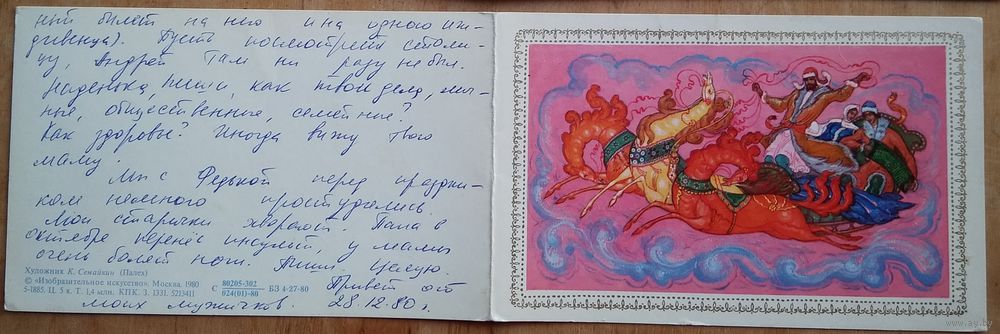 ный билет на него и на одного иж-
дивенца). Пусть посмотрят столи-
цу, Андрей там ни разу не был.
Наденька, пиши, как твои дела, лич-
ные, общественные, семейные?
Как здоровье? Иногда вижу твою
маму.
Мы с Федькой перед праздни-
ком немного простудились.
Мои старички хворают. Папа в
октябре перенёс инсульт, у мамы
очень болят ноги. Пиши. Целую.
Привет от
моих мужичков 28.12.80 г.
Художник К. Семайкин (Палех)
© «Изобразительное искусство». Москва. 1980
5-1885. Ц. 5 к. Т. 1,4 млн. КПК. З. 1331. 5213411
С 80205-302
024(01)-80 БЗ 4-27-80
www.ay.by